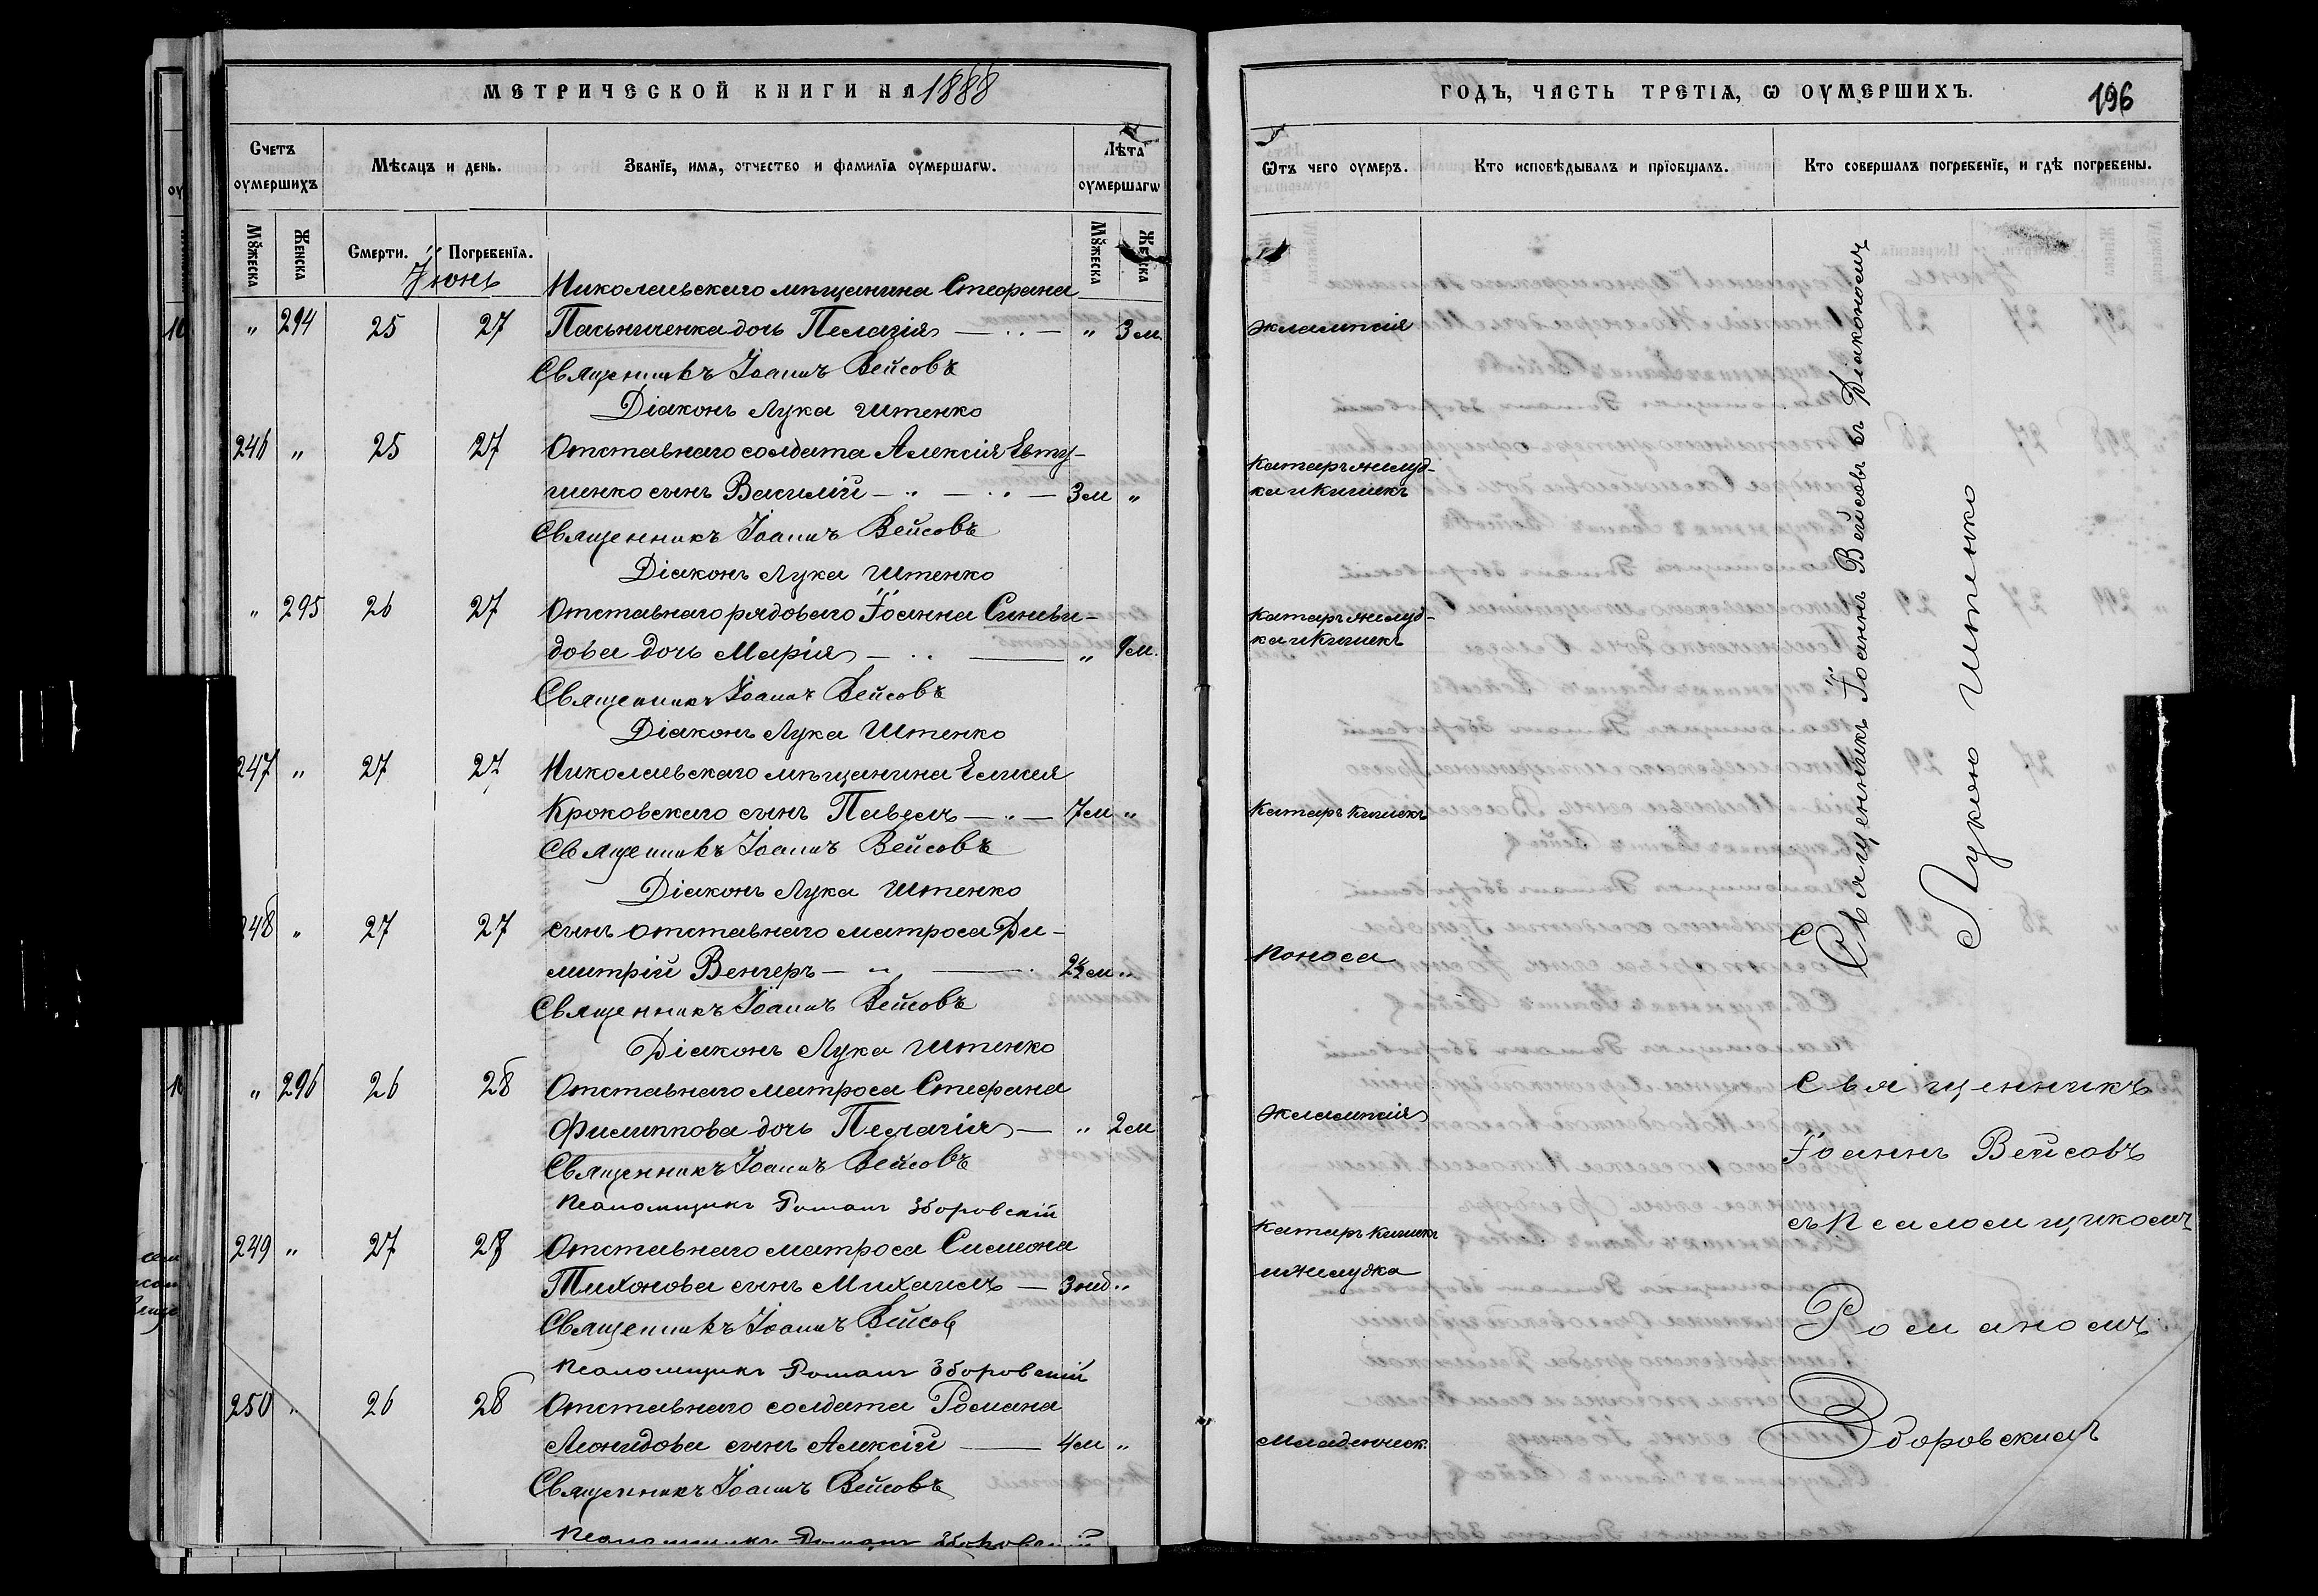 МЕТРИЧЕСКОЙ КНИГИ НА 1888
Счетъ оумершихъ
Мѣсяцъ и день.
Званїе, имя, отчество и фамилїя оумершагѡ.
Лѣта оумершагѡ
Мꙋжеска
Женска
Смерти.
Погребенїя.
Мꙋжеска
Женска
Іюнь
Николаевскаго мѣщанина Стефана
„ 294 25 27 Пасьниченка дочь Пелагія — „ 3 м.
Священникъ Іоаннъ Вейсовъ
Діаконъ Лука Итенко
246 „ 25 27 Отставнаго солдата Алексія Евту-
шенко сынъ Василій — „ — 3 м „
Священникъ Іоаннъ Вейсовъ
Діаконъ Лука Итенко
„ 295 26 27 Отставнаго рядоваго Іоанна Синьги-
дова дочь Марія — „ 9 м.
Священникъ Іоаннъ Вейсовъ
Діаконъ Лука Итенко
247 „ 27 27 Николаевскаго мѣщанина Елисея
Кроковскаго сынъ Павелъ — „ — 7 м „
Священникъ Іоаннъ Вейсовъ
Діаконъ Лука Итенко
248 „ 27 27 сынъ отставнаго матроса Ди-
митрій Венгеръ — „ — 2½ м „
Священникъ Іоаннъ Вейсовъ
Діаконъ Лука Итенко
„ 296 26 28 Отставнаго матроса Стефана
Филиппова дочь Пелагія — „ 2 м
Священникъ Іоаннъ Вейсовъ
Псаломщикъ Романъ Зборовскій
249 „ 27 28 Отставнаго матроса Симеона
Тихонова сынъ Михаилъ — 3 нед „
Священникъ Іоаннъ Вейсов
Псаломщикъ Романъ Зборовскій
250 „ 26 28 Отставнаго солдата Романа
Леонидова сынъ Алексій — 4 м „
Священникъ Іоаннъ Вейсовъ
Псаломщикъ Романъ Зборовскій
ГОДЪ, ЧАСТЬ ТРЕТІЯ, Ѡ ОУМЕРШИХЪ.
196
Ѿтъ чего оумеръ.
Кто исповѣдывалъ и прїобщалъ.
Кто совершалъ погребенїе, и гдѣ погребены.
эклампсія
Катаръ желуд-
ка и кишекъ
Катаръ желуд-
ка и кишекъ
Катаръ кишекъ
Поноса
эклампсія
Катаръ кишекъ
и желудка
Младенческ.
Священникъ Іоаннъ Вейсовъ съ Діакономъ
Лукою Итенко
Священникъ
Іоаннъ Вейсовъ
съ Псаломщикомъ
Романомъ
Зборовскимъ